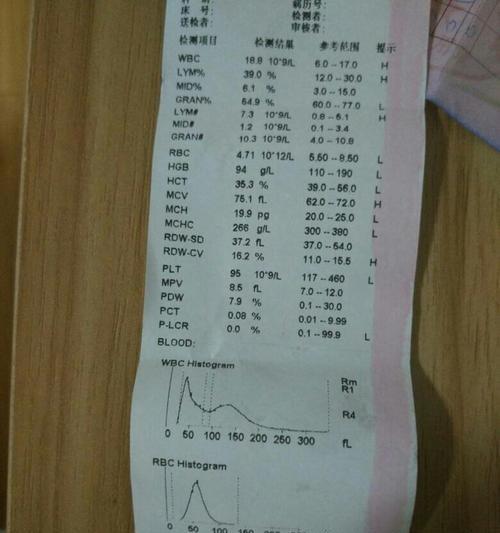 床 号:
病历号:
送检者:
检测者:
审核者:
检测项目 检测结果 参考范围 提示
WBC 18.8 10^9/L 6.0 -- 17.0 H
LYM% 39.0 % 12.0 -- 30.0 H
MID% 6.1 % 3.0 -- 15.0
GRAN% 54.9 % 60.0 -- 77.0 L
LYM# 7.3 10^9/L 0.8 -- 5.1 H
MID# 1.2 10^9/L 0.1 -- 3.4
GRAN# 10.3 10^9/L 4.0 -- 10.8
RBC 4.71 10^12/L 5.50 -- 8.50 L
HGB 94 g/L 110 -- 190 L
HCT 35.3 % 39.0 -- 56.0 L
MCV 75.1 fL 62.0 -- 72.0 H
MCH 19.9 pg 20.0 -- 25.0 L
MCHC 266 g/L 300 -- 380 L
RDW-SD 37.2 fL 37.0 -- 54.0
RDW-CV 16.2 % 11.0 -- 15.5 H
PLT 95 10^9/L 117 -- 460 L
MPV 8.5 fL 7.0 -- 12.0
PDW 7.9 % 0.1 -- 30.0
PCT 0.08 % 0.01 -- 9.99
P-LCR 0.0 % 0.1 -- 99.9 L
BLOOD:
WBC Histogram
Rm
R1
R4
0 50 100 150 200 250 300 fL
RBC Histogram
0 50 100 150 200 250 fL